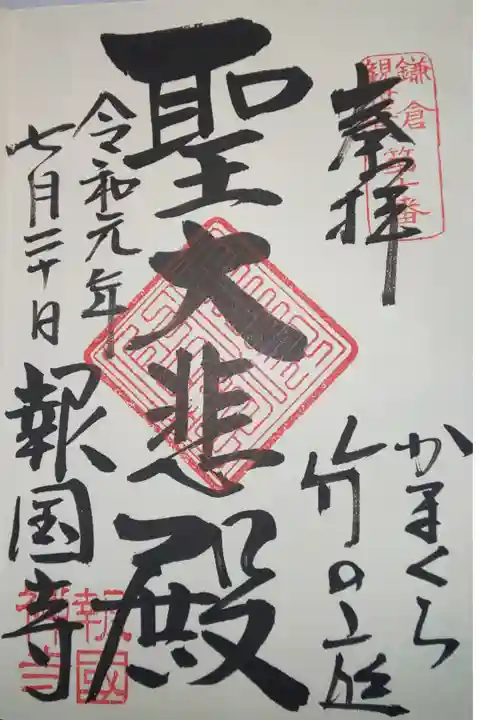 鎌倉
奉拝
かまくら
竹の庭
聖大悲殿
令和元年
七月二十日
報国寺
報國
禅寺